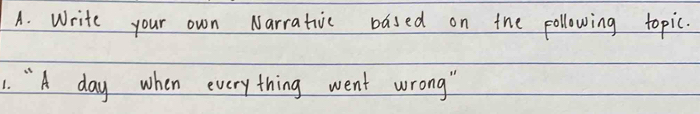 A. Write your own Narrative based on the following topic.
1. "A day when every thing went wrong"